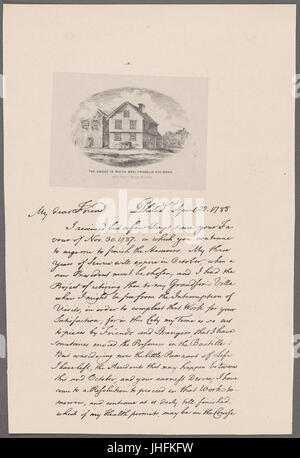 THE HOUSE IN WHICH BENJ. FRANKLIN WAS BORN
My dear Friend Philada April 22. 1788
I received but a few Days since your Fa-
vour of Nov. 30. 1787, in which you continue
to urge me to finish the Memoirs. My three
Years of Service will expire in October, when a
new President must be chosen, and I had the
Project of retiring then to my Grandson's Villa
where I might be free from the Interruption of
Visits, in order to compleat that Work for your
Satisfaction; for in this City my Time is so cut
to pieces by Friends and Strangers that I have
sometimes envied the Prisoners in the Bastille.
But considering now the little Remnant of Life
I have left, the Accidents that may happen between
this and October, and your earnest Desire, I have
come to a Resolution to proceed in that Work to-
morrow, and continue at it daily till finished,
which if my Health permits may be in the Course
alamy
www.alamy.com
JHFKFW